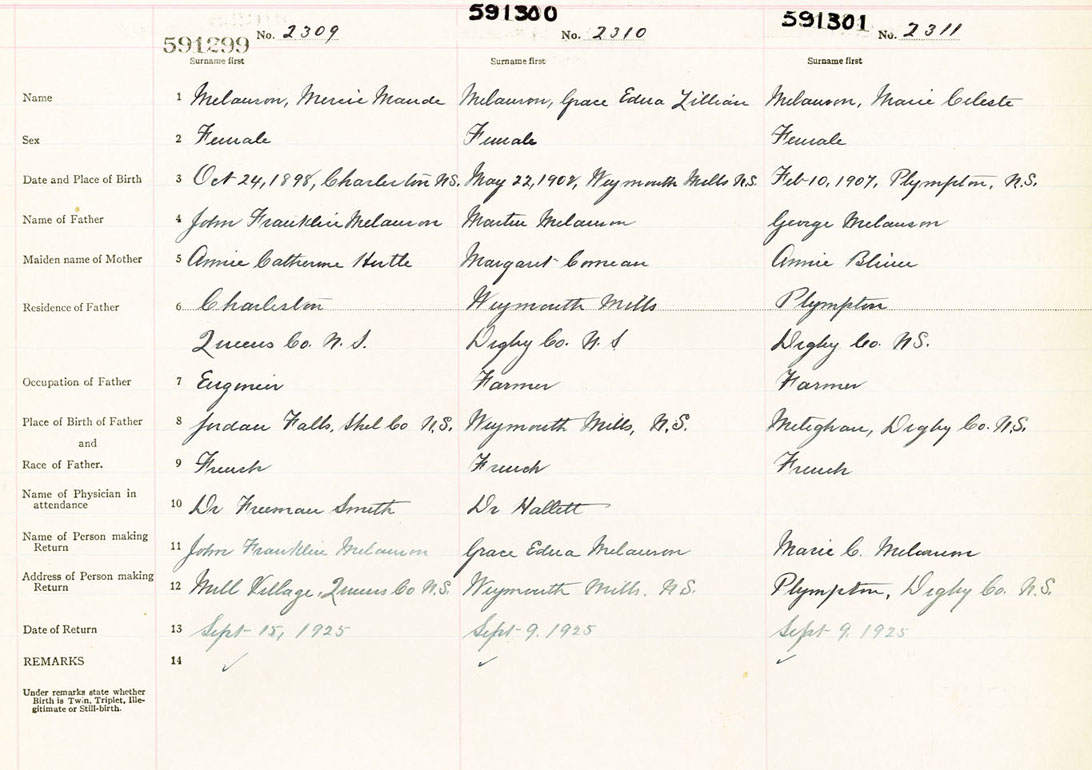 591299 No. 2309 591300 No. 2310 591301 No. 2311
Surname first Surname first Surname first
Name 1 Melanson, Mercie Maude Melanson, Grace Edna Lillian Melanson, Marie Celeste
Sex 2 Female Female Female
Date and Place of Birth 3 Oct 24, 1898, Charleston N.S. May 22, 1908, Weymouth Mills N.S. Feb 10, 1907, Plympton, N.S.
Name of Father 4 John Franklin Melanson Martin Melanson George Melanson
Maiden name of Mother 5 Annie Catherine Hirtle Margaret Comeau Annie
Residence of Father 6 Charleston Weymouth Mills Plympton
Queens Co. N.S. Digby Co. N.S Digby Co. N.S.
Occupation of Father 7 Engineir Farmer Farmer
Place of Birth of Father 8 Jordan Falls, Shel Co N.S. Weymouth Mills, N.S. Meteghan, Digby Co. N.S.
and
Race of Father. 9 French French French
Name of Physician in
attendance 10 Dr Freeman Smith Dr Hallett
Name of Person making
Return 11 John Franklin Melanson Grace Edna Melanson Marie C. Melanson
Address of Person making
Return 12 Mill Village, Queens Co N.S. Weymouth Mills. N.S. Plympton, Digby Co. N.S.
Date of Return 13 Sept 15, 1925 Sept 9. 1925 Sept 9. 1925
REMARKS 14 ✓ ✓ ✓
Under remarks state whether
Birth is Twin, Triplet, Ille-
gitimate or Still-birth.